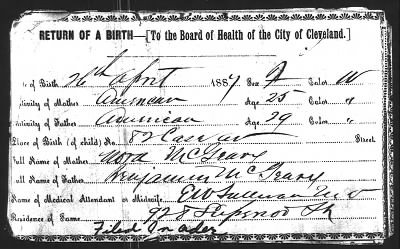 RETURN OF A BIRTH—[To the Board of Health of the City of Cleveland.]
e of Birth 26th April 1887 Sex F Color W
tivity of Mother American Age 25 Color "
tivity of Father American Age 29 Color "
Place of Birth (of child) No. 82 Street
Full Name of Mother Nora McGeary
Full Name of Father Benjamin McGeary
Name of Medical Attendant or Midwife.
Residence of Same 928 Superior St
Filed